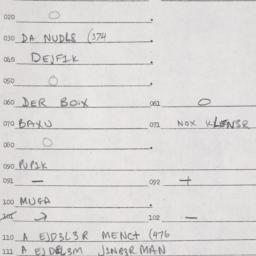 020 O
030 DA NUDLS (374
040 DEJF1K
050 O
060 DER BOIX 061 O
070 BAXU 071 NOX KLEN3R
080 O
090 PUP1K
091 — 092 +
100 MUGA
101 → 102 —
110 A EJD3L3R MENCT (476
111 A EJDEL3M J1NE3R MAN